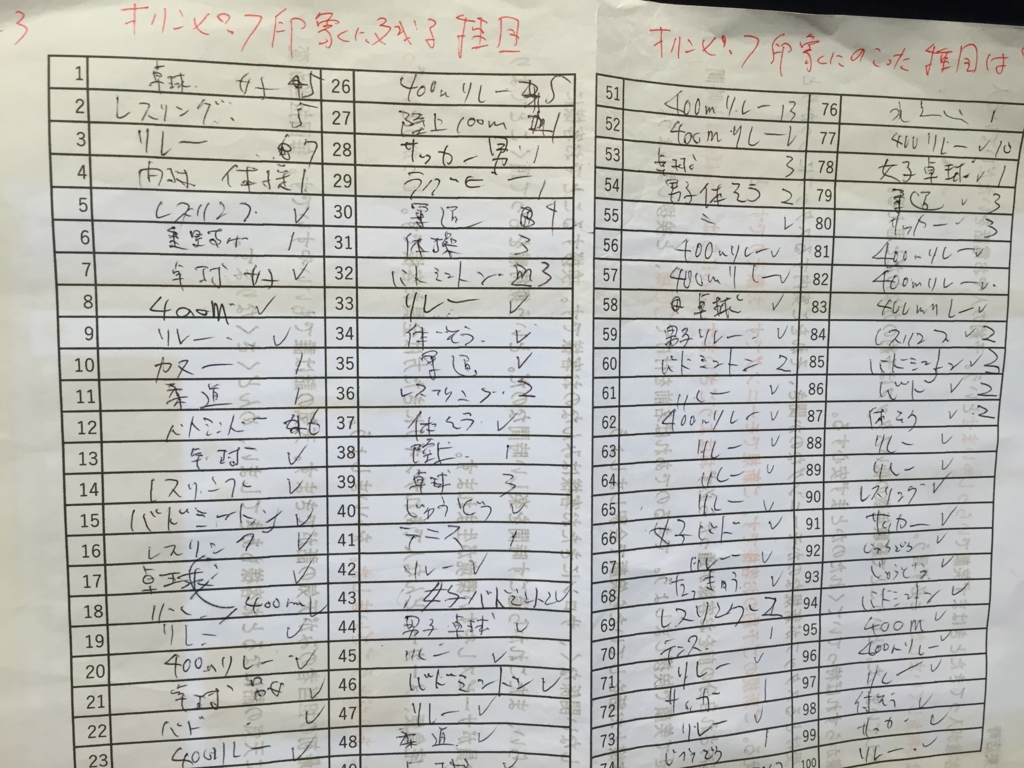 3 オリンピック印象に残る種目
1 卓球 女子 5 26 400mリレー 5
2 レスリング 5 27 陸上100m 1
3 リレー 7 28 サッカー 男 1
4 体操 1 29 ラグビー 1
5 レスリング ✓ 30 柔道 4
6 1 31 体操 3
7 卓球 女子 ✓ 32 バトミントン 3
8 400m ✓ 33 リレー ✓
9 リレー ✓ 34 体そう ✓
10 カヌー 1 35 柔道 ✓
11 柔道 1 36 レスリング 2
12 バトミントン 6 37 体そう ✓
13 卓球 ✓ 38 陸上 1
14 レスリング ✓ 39 卓球 3
15 バドミントン ✓ 40 じゅうどう ✓
16 レスリング ✓ 41 テニス 1
17 卓球 ✓ 42 リレー ✓
18 リレー 400m 43 女子バトミントン ✓
19 リレー ✓ 44 男子卓球 ✓
20 400mリレー ✓ 45 リレー ✓
21 卓球 ✓ 46 バドミントン ✓
22 バド ✓ 47 リレー ✓
23 400mリレー ✓ 48 柔道 ✓
オリンピック印象にのこった種目は
51 400mリレー 13 76 1
52 400mリレー ✓ 77 400リレー ✓ 10
53 卓球 3 78 女子卓球 ✓ 1
54 男子体そう 2 79 柔道 ✓ 3
55 〃 ✓ 80 サッカー ✓ 3
56 400mリレー ✓ 81 400mリレー ✓
57 400mリレー ✓ 82 400mリレー ✓
58 卓球 ✓ 83 400mリレー ✓
59 男子リレー ✓ 84 レスリング ✓ 2
60 バドミントン 2 85 バドミントン ✓ 3
61 リレー ✓ 86 バド ✓ 2
62 400mリレー ✓ 87 体そう ✓ 2
63 リレー ✓ 88 リレー ✓
64 リレー ✓ 89 リレー ✓
65 リレー ✓ 90 レスリング ✓
66 女子バド ✓ 91 サッカー ✓
67 リレー ✓ 92 じゅうどう ✓
68 たっきゅう ✓ 93 じゅうどう ✓
69 レスリング 2 94 バドミントン ✓
70 テニス 1 95 400M ✓
71 リレー ✓ 96 400mリレー
72 サッカー 1 97 リレー ✓
73 リレー ✓ 98 体そう ✓
じゅうどう 99 サッカー ✓
100 リレー ✓